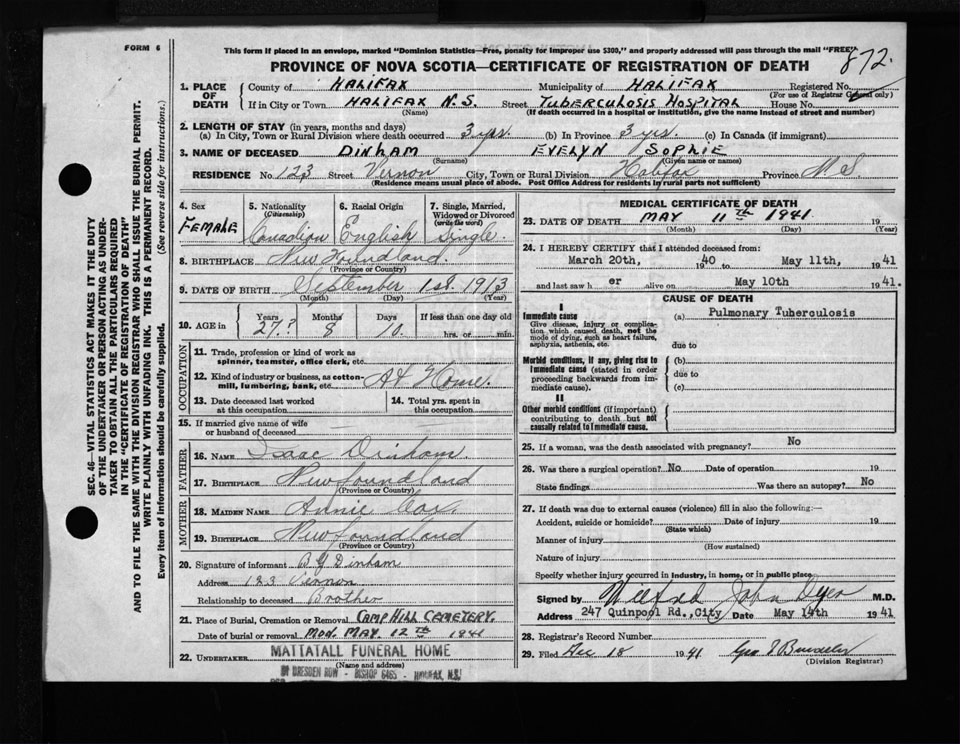 FORM 6
This form if placed in an envelope, marked "Dominion Statistics—Free, penalty for improper use $300," and properly addressed will pass through the mail "FREE"
PROVINCE OF NOVA SCOTIA—CERTIFICATE OF REGISTRATION OF DEATH
872.
1. PLACE OF DEATH
County of HALIFAX Municipality of HALIFAX Registered No.
(For use of Registrar General only)
If in City or Town HALIFAX N.S. Street TUBERCULOSIS HOSPITAL House No.
(Name) (If death occurred in a hospital or institution, give the name instead of street and number)
2. LENGTH OF STAY (in years, months and days)
(a) In City, Town or Rural Division where death occurred 3 yrs. (b) In Province 3 yrs. (c) In Canada (if immigrant)
3. NAME OF DECEASED DINHAM EVELYN SOPHIE
(Surname) (Given name or names)
RESIDENCE No. 123 Street Vernon City, Town or Rural Division Halifax Province N.S.
(Residence means usual place of abode. Post Office Address for residents in rural parts not sufficient)
4. Sex
FEMALE
5. Nationality (Citizenship)
Canadian
6. Racial Origin
English
7. Single, Married, Widowed or Divorced (write the word)
Single.
8. BIRTHPLACE New Foundland.
(Province or Country)
9. DATE OF BIRTH September 1st. 1913
(Month) (Day) (Year)
10. AGE in Years Months Days If less than one day old
27.? 8 10. hrs. or min.
OCCUPATION
11. Trade, profession or kind of work as spinner, teamster, office clerk, etc.
12. Kind of industry or business, as cotton-mill, lumbering, bank, etc. At Home.
13. Date deceased last worked at this occupation
14. Total yrs. spent in this occupation
15. If married give name of wife or husband of deceased
FATHER
16. NAME Isaac Dinham.
17. BIRTHPLACE Newfoundland
(Province or Country)
MOTHER
18. MAIDEN NAME Annie
19. BIRTHPLACE Newfoundland
(Province or Country)
20. Signature of informant Dinham
Address 123 Vernon
Relationship to deceased Brother
21. Place of Burial, Cremation or Removal CAMP HILL CEMETERY.
Date of burial or removal MON. MAY. 12TH 1941
22. UNDERTAKER MATTATALL FUNERAL HOME
(Name and address)
DRESDEN ROW - BISHOP 6463 - HALIFAX, N.S.
MEDICAL CERTIFICATE OF DEATH
23. DATE OF DEATH MAY 11TH 1941. 19
(Month) (Day) (Year)
24. I HEREBY CERTIFY that I attended deceased from:
March 20th, 1940 to May 11th, 1941
and last saw h er alive on May 10th 1941.
CAUSE OF DEATH
I
Immediate cause
Give disease, injury or complication which caused death, not the mode of dying, such as heart failure, asphyxia, asthenia, etc.
(a) Pulmonary Tuberculosis
due to
Morbid conditions, if any, giving rise to immediate cause (stated in order proceeding backwards from immediate cause).
(b)
due to
(c)
II
Other morbid conditions (if important) contributing to death but not causally related to immediate cause.
25. If a woman, was the death associated with pregnancy? No
26. Was there a surgical operation? No Date of operation 19
State findings Was there an autopsy? No
27. If death was due to external causes (violence) fill in also the following:—
Accident, suicide or homicide? Date of injury 19
(State which)
Manner of injury
(How sustained)
Nature of injury
Specify whether injury occurred in industry, in home, or in public place
Signed by Wilfred John Dyer M.D.
Address 247 Quinpool Rd., City Date May 14th 1941
28. Registrar's Record Number
29. Filed Dec 18 1941 Geo
(Division Registrar)
SEC. 46—VITAL STATISTICS ACT MAKES IT THE DUTY
OF THE UNDERTAKER OR PERSON ACTING AS UNDERTAKER
TO OBTAIN ALL THE PARTICULARS REQUIRED
IN THE "CERTIFICATE OF REGISTRATION OF DEATH"
AND TO FILE THE SAME WITH THE DIVISION REGISTRAR WHO SHALL ISSUE THE BURIAL PERMIT.
WRITE PLAINLY WITH UNFADING INK. THIS IS A PERMANENT RECORD.
Every item of information should be carefully supplied. (See reverse side for instructions.)